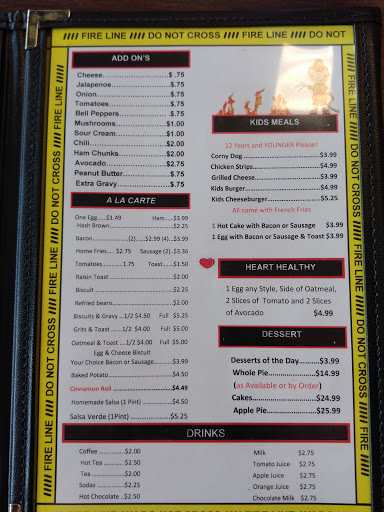 //// FIRE LINE //// DO NOT CROSS //// FIRE LINE //// DO NOT
ADD ON'S
Cheese......................$ .75
Jalapenos...................$.75
Onion.......................$.75
Tomatoes....................$.75
Bell Peppers................$.75
Mushrooms...................$1.00
Sour Cream..................$1.00
Chili.......................$2.00
Ham Chunks..................$2.00
Avocado.....................$2.75
Peanut Butter...............$.75
Extra Gravy.................$.75
A LA CARTE
One Egg.....$1.49 Ham.....$3.99
Hash Brown..................$2.25
Bacon..............(2).....$2.99 (4)...$3.99
Home Fries.... $2.75 Sausage (2)..$3.36
Tomatoes...........1.75 Toast.....$1.50
Raisin Toast ...............$2.00
Biscuit ....................$2.25
Refried beans...............$2.00
Biscuits & Gravy ...1/2 $4.50 Full $5.25
Grits & Toast .....1/2 $4.00 Full $5.00
Oatmeal & Toast ....1/2 $4.00 Full $5.00
Egg & Cheese Biscuit
Your Choice Bacon or Sausage..........$3.99
Baked Potato................$4.50
Cinnamon Roll ..............$4.49
Homemade Salsa (1 Pint) ..........$4.50
Salsa Verde (1Pint) .............$5.25
KIDS MEALS
12 Years and YOUNGER Please!
Corny Dog ..................$3.99
Chicken Strips..............$4.99
Grilled Cheese..............$3.99
Kids Burger.................$4.99
Kids Cheeseburger...........$5.25
All come with French Fries
1 Hot Cake with Bacon or Sausage $3.99
1 Egg with Bacon or Sausage & Toast $3.99
HEART HEALTHY
1 Egg any Style, Side of Oatmeal,
2 Slices of Tomato and 2 Slices
of Avocado $4.99
DESSERT
Desserts of the Day.........$3.99
Whole Pie...................$14.99
(as Available or by Order)
Cakes.......................$24.99
Apple Pie...................$25.99
DRINKS
Coffee .............$2.00
Hot Tea ............$2.50
Tea ................$2.00
Sodas ..............$2.25
Hot Chocolate ..$2.50
Milk $2.75
Tomato Juice $2.75
Apple Juice $2.75
Orange Juice $2.75
Chocolate Milk $2.75
FIRE LINE //// DO NOT CROSS //// FIRE LINE //// DO NOT CROSS //// FIRE LINE
FIRE LINE //// DO NOT CROSS //// FIRE LINE //// DO NOT CROSS //// FIRE LINE